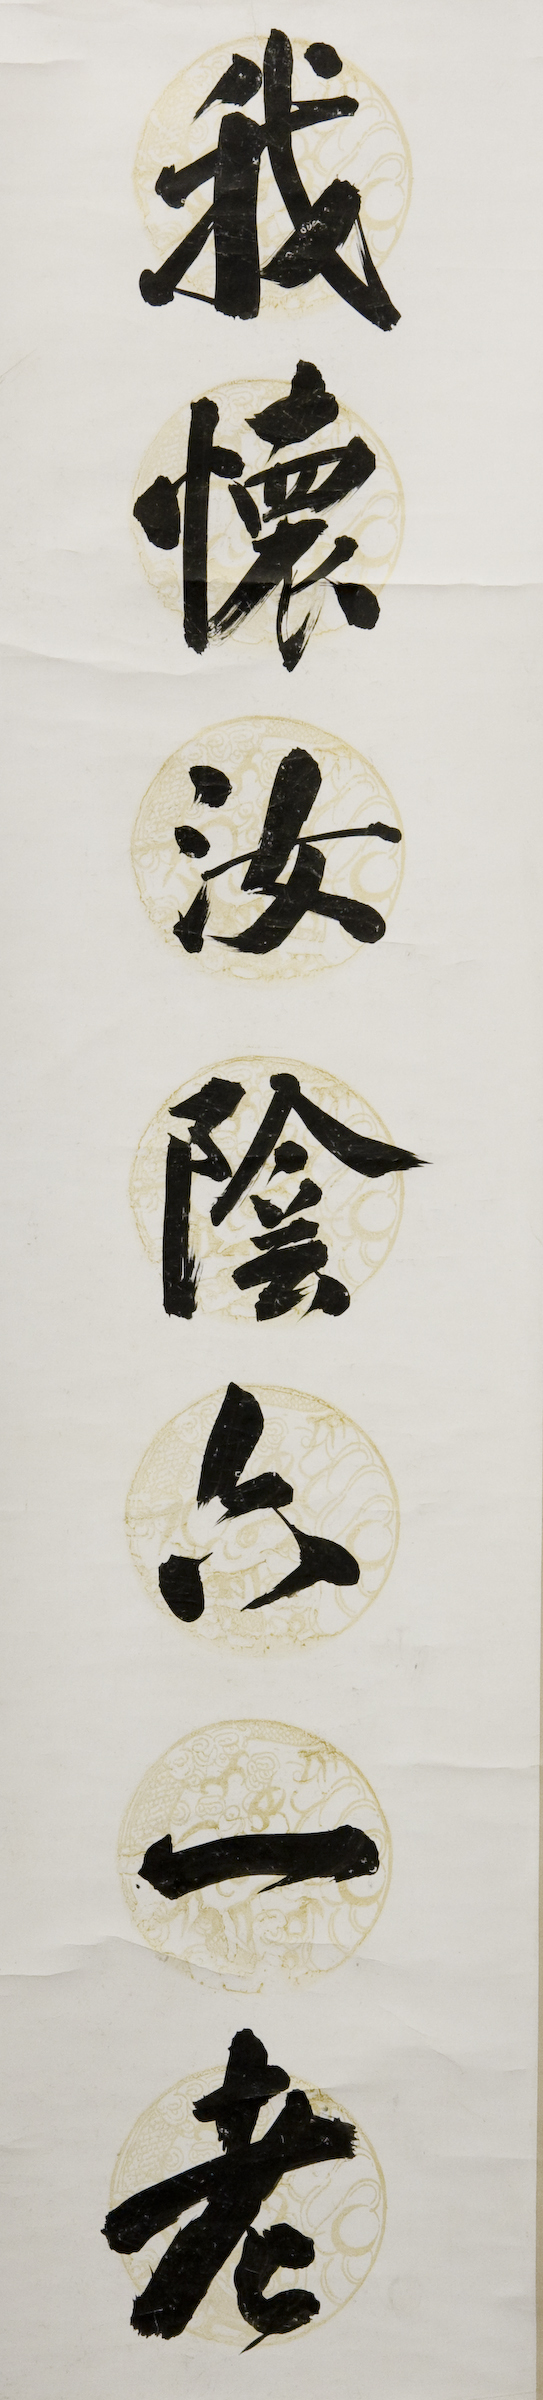 我懷汝陰六一老